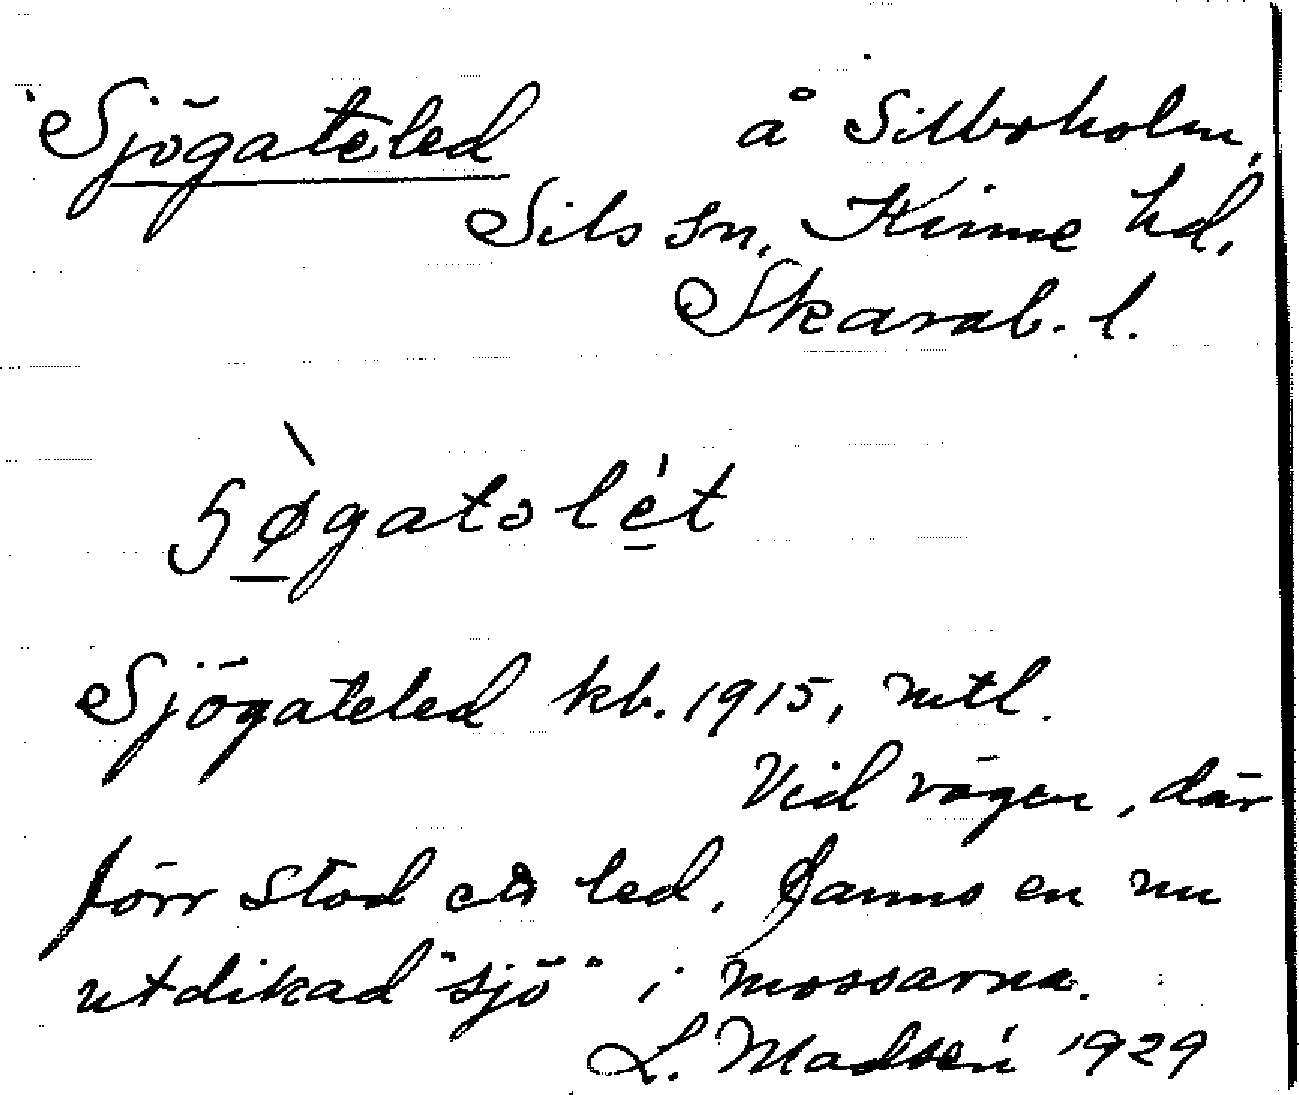 Sjögateled å Silboholm,
Sils sn, Kinne hd,
Skarab. l.
Sjögateled kb. 1915, mtl.
Vid vägen, där
förr stod ett led. Fanns en nu
utdikad "sjö" i mossarna.
L. Madsén 1929